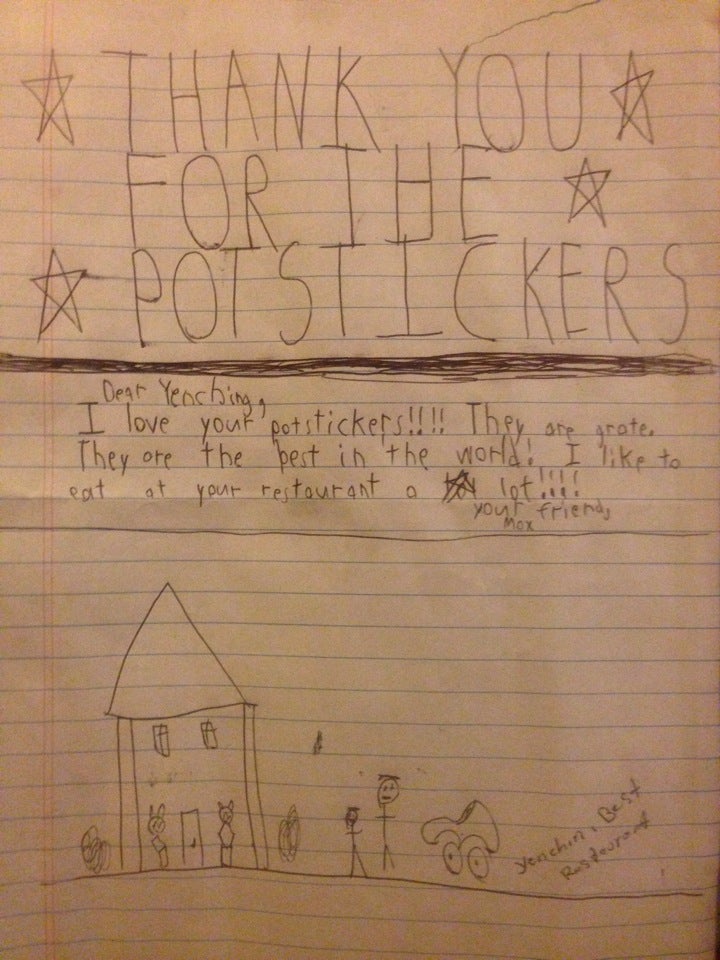 THANK YOU
FOR THE
POTSTICKERS
Dear Yenching,
I love your potstickers!!!! They are grate.
They are the best in the world! I like to
eat at your restaurant a lot!!!!
your friend,
Max
Best
Rastaurant